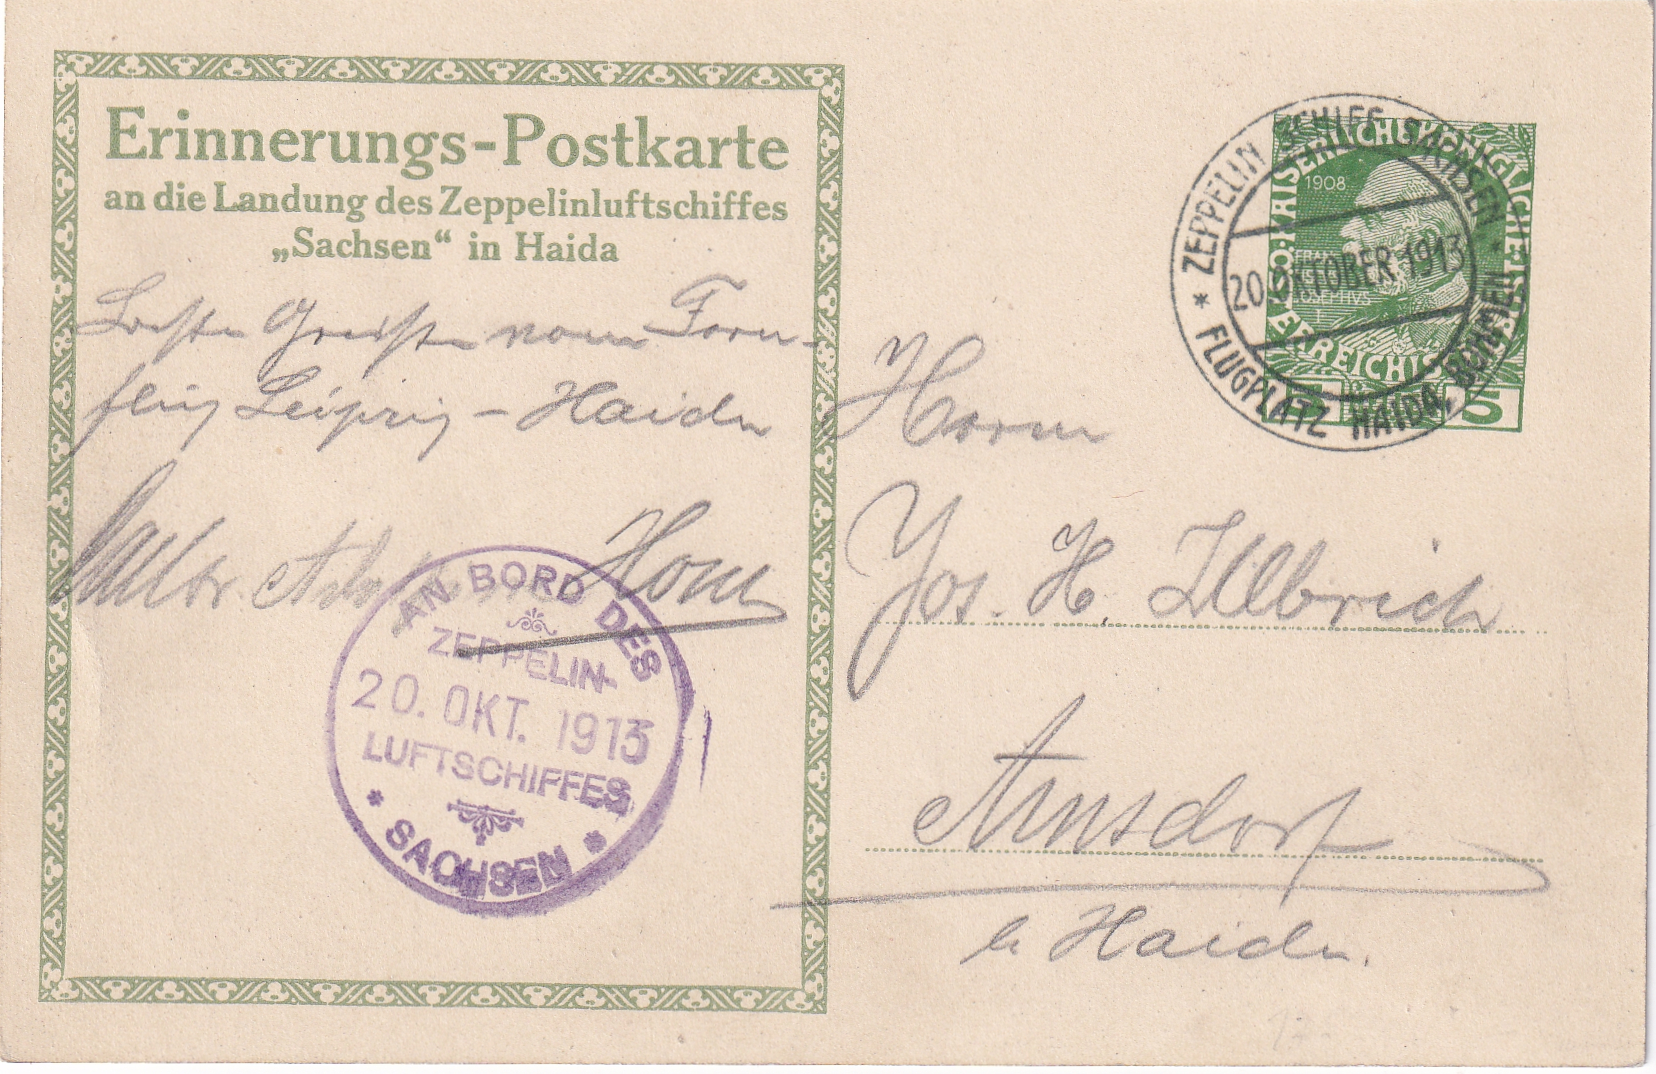 Erinnerungs-Postkarte
an die Landung des Zeppelinluftschiffes
„Sachsen“ in Haida
Beste Grüße vom Fern-
flug Leipzig – Haida
AN BORD DES
ZEPPELIN-
20. OKT. 1913
LUFTSCHIFFES
* SACHSEN *
* ZEPPELIN SCHIFF SACHSEN *
20. OKTOBER 1913
FLUGPLATZ HAIDA, BÖHMEN
KAISERLICHE KÖNIGLICHE
1908
FRANC
IOSEPHVS
I
ÖSTERREICHISCHE
5
Herrn
Jos. H. Illbrich
Arnsdorf
b Haida.